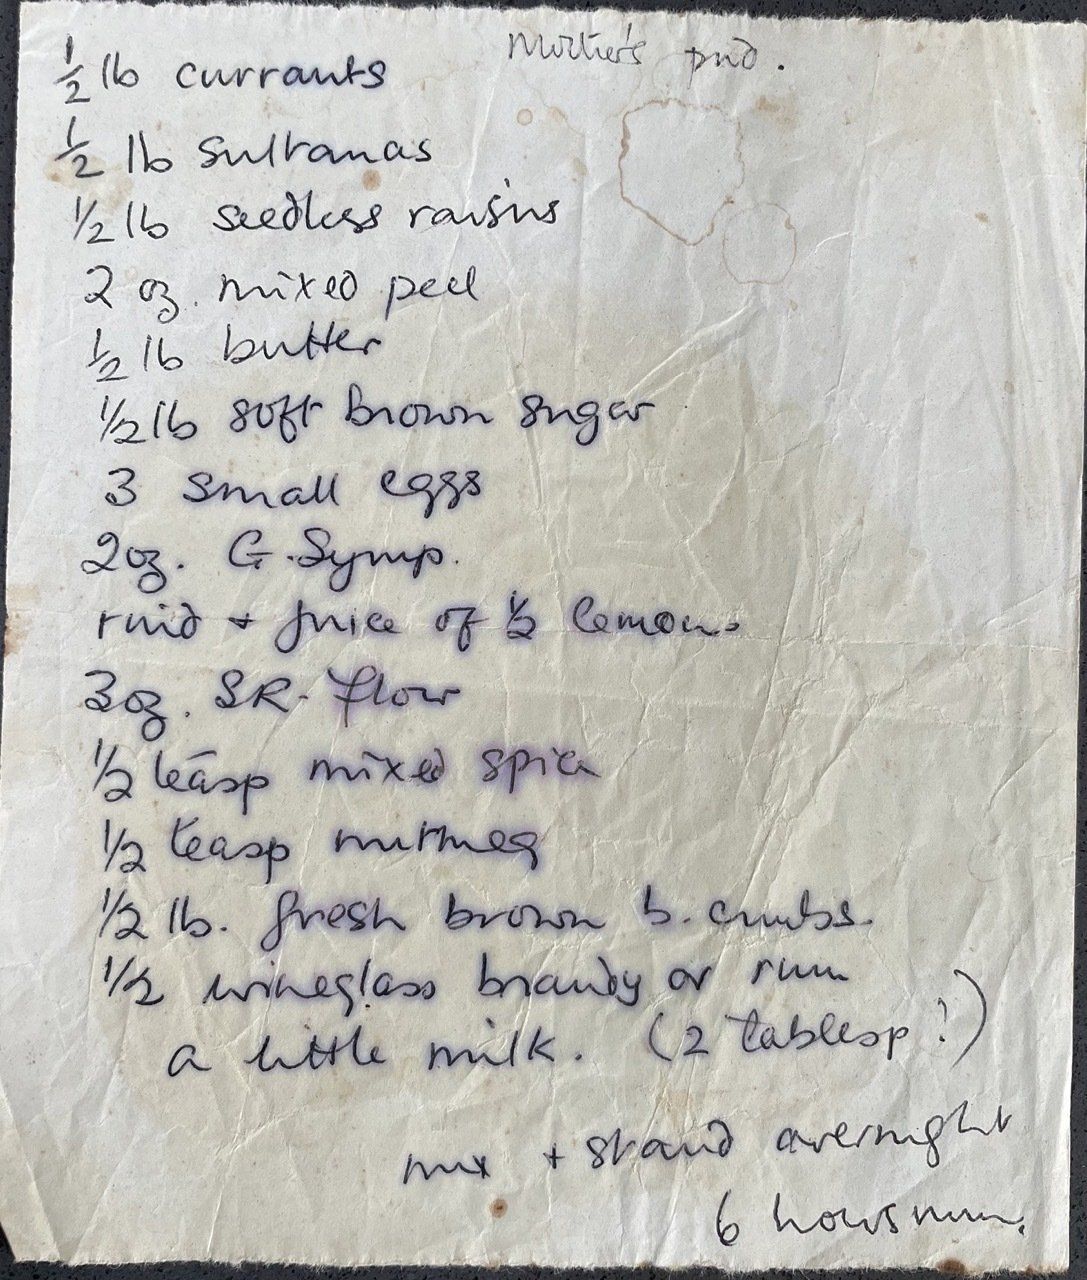 Mother's pud.
½ lb currants
½ lb sultanas
½ lb seedless raisins
2 oz. mixed peel
½ lb butter
½ lb soft brown sugar
3 small eggs
2oz. G. Syrup.
rind + juice of ½ lemon.
3oz. SR. flour
½ teasp mixed spice
½ teasp nutmeg
½ lb. fresh brown b. crumbs.
½ wineglass brandy or rum
a little milk. (2 tablesp!)
mix + stand overnight
6 hours min.